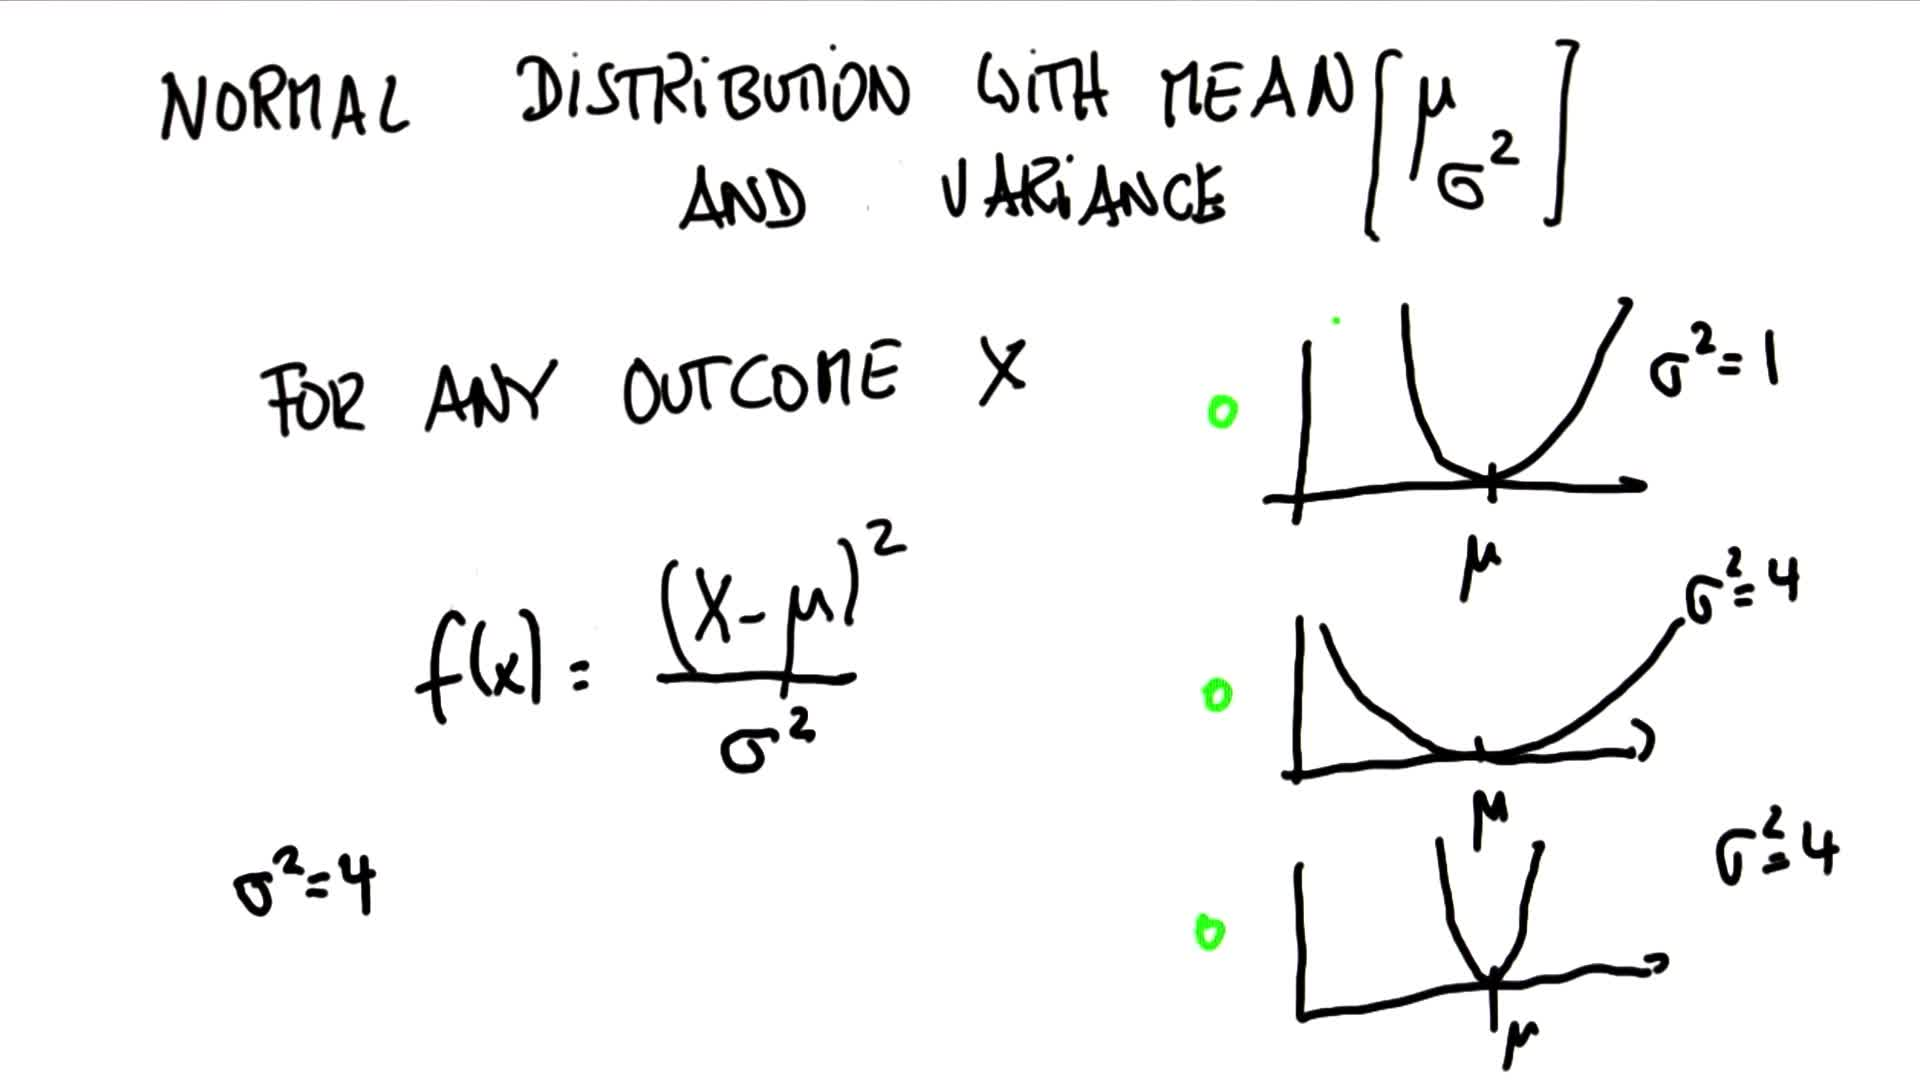 NORMAL DISTRIBUTION WITH MEAN [μ
AND VARIANCE σ²]
FOR ANY OUTCOME X
σ² = 1
μ
f(x) = (X - μ)² / σ²
σ² = 4
μ
σ² = 4
σ² = 4
μ